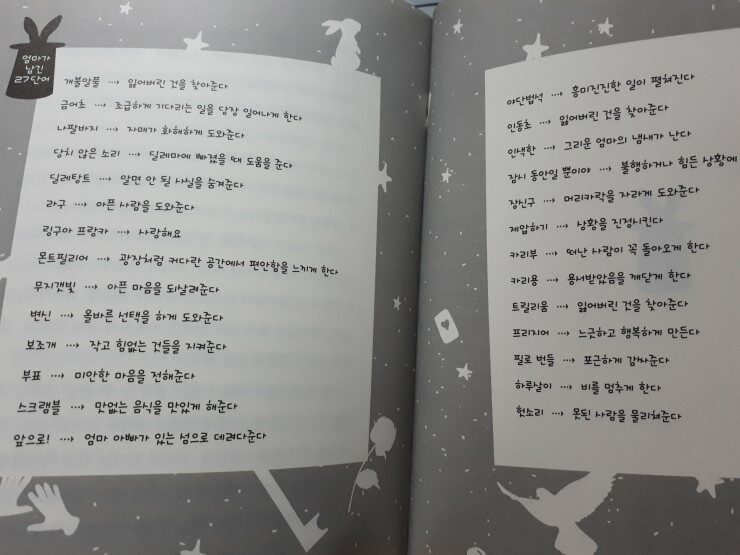 엄마가
남긴
27단어
개불알풀 ···→ 잃어버린 것을 찾아준다
금어초 ···→ 조급하게 기다리는 일을 당장 일어나게 한다
나팔바지 ···→ 자매가 화해하게 도와준다
당치 않은 소리 ···→ 딜레마에 빠졌을 때 도움을 준다
딜레탕트 ···→ 알면 안 될 사실을 숨겨준다
라구 ···→ 아픈 사람을 도와준다
링구아 프랑카 ···→ 사랑해요
몬트필리어 ···→ 광장처럼 커다란 공간에서 편안함을 느끼게 한다
무지갯빛 ···→ 아픈 마음을 되살려준다
변신 ···→ 올바른 선택을 하게 도와준다
보조개 ···→ 작고 힘없는 것들을 지켜준다
부표 ···→ 미안한 마음을 전해준다
스크램블 ···→ 맛없는 음식을 맛있게 해준다
앞으로! ···→ 엄마 아빠가 있는 섬으로 데려다준다
야단법석 ···→ 흥미진진한 일이 펼쳐진다
인동초 ···→ 잃어버린 것을 찾아준다
인색한 ···→ 그리운 엄마의 냄새가 난다
잠시 동안일 뿐이야 ···→ 불행하거나 힘든 상황에
장신구 ···→ 머리카락을 자라게 도와준다
제압하기 ···→ 상황을 진정시킨다
카리부 ···→ 떠난 사람이 꼭 돌아오게 한다
카리용 ···→ 용서받았음을 깨닫게 한다
트릴리움 ···→ 잃어버린 것을 찾아준다
프리지어 ···→ 느긋하고 행복하게 만든다
필로 번들 ···→ 포근하게 감싸준다
하루날이 ···→ 비를 멈추게 한다
헛소리 ···→ 못된 사람을 물리쳐준다